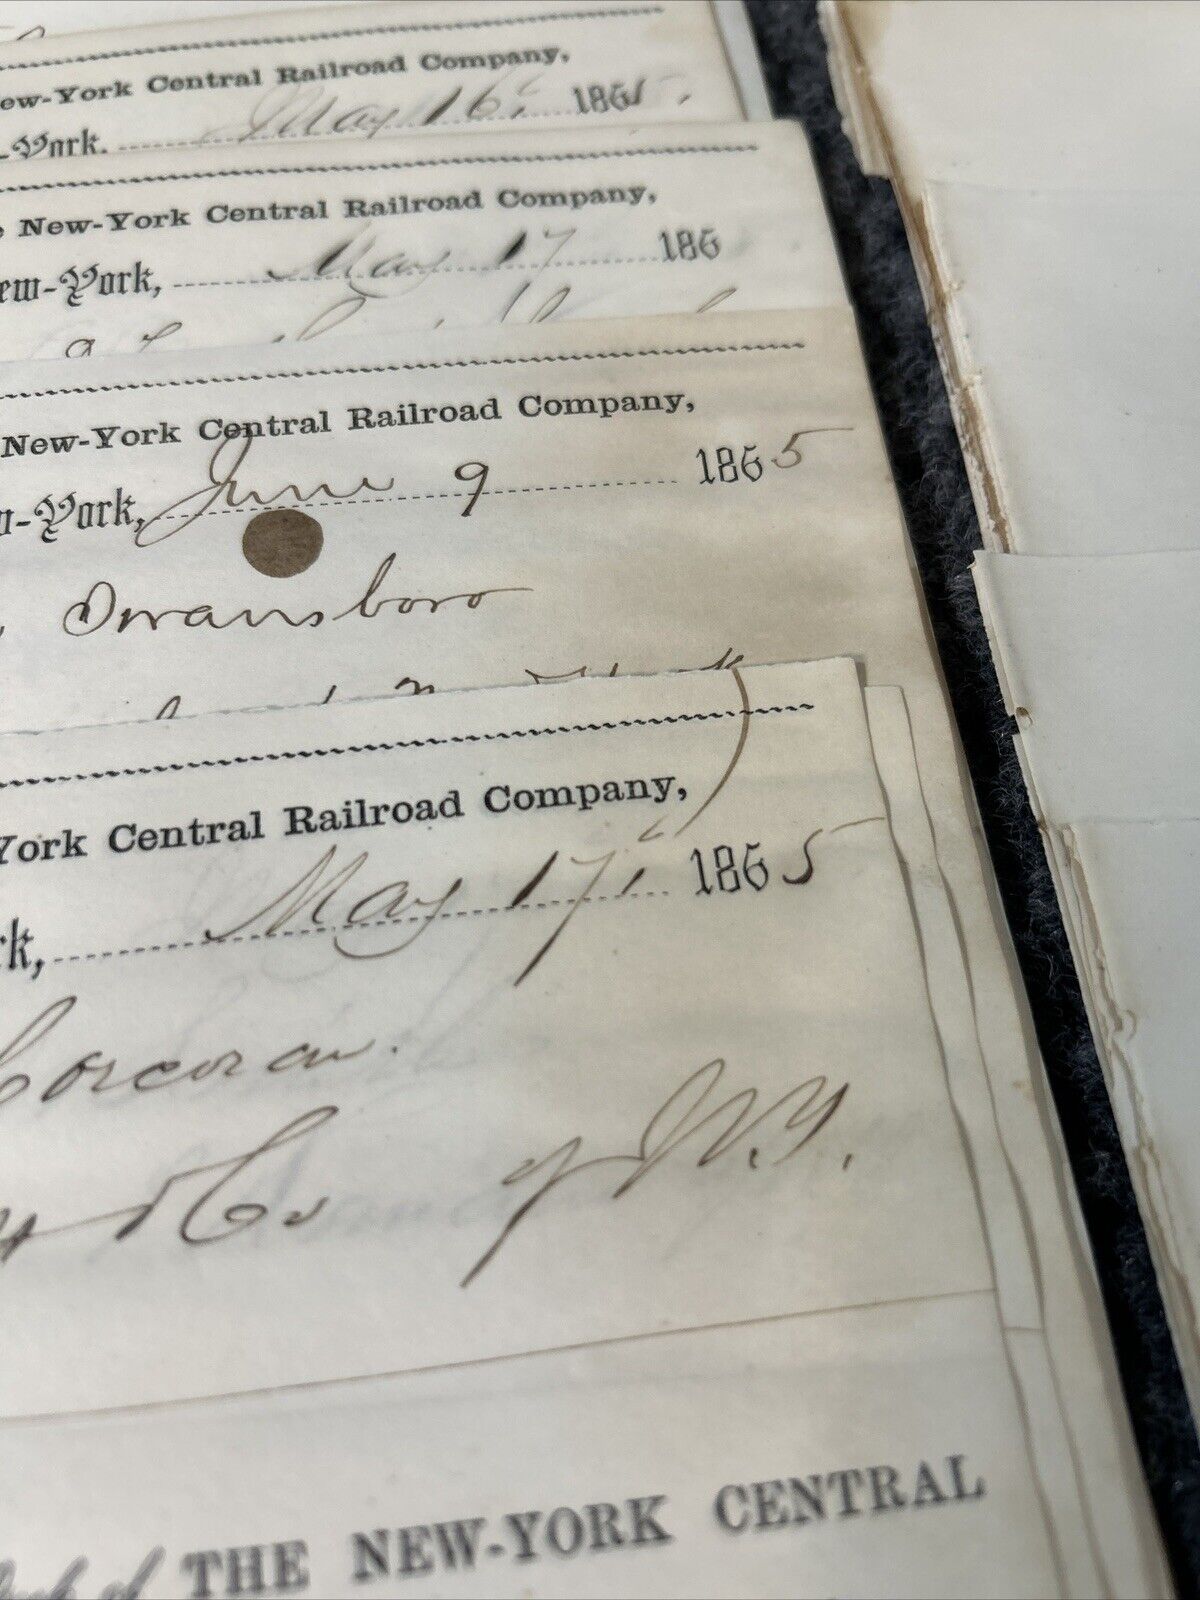 ew-York Central Railroad Company,
-York. May 16. 1865.
New-York Central Railroad Company,
ew-York, May 17 186
New-York Central Railroad Company,
w-York, June 9 1865
Swansboro
York Central Railroad Company,
rk, May 17. 1865
Corcoran.
Co of N.Y.
of THE NEW-YORK CENTRAL